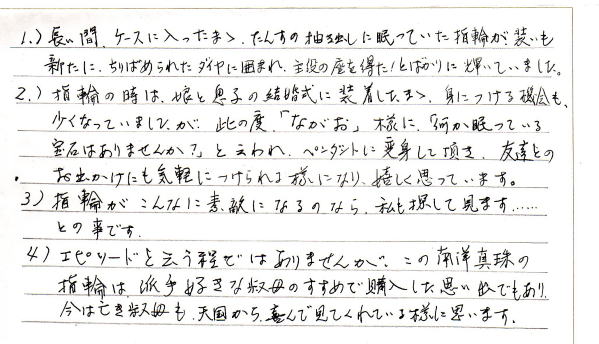 1.) 長い間、ケースに入ったまゝ、たんすの抽出しに眠っていた指輪が装いも
新たに、ちりばめられたダイヤに囲まれ、主役の座を得たとばかりに輝いていました。
2.) 指輪の時は、娘と息子の結婚式に装着したまゝ、身につける機会も、
少くなっていましたが、此の度、「ながお」様に、「何か眠っている
宝石はありませんか?」と云われ、ペンダントに変身して頂き、友達との
お出かけにも気軽につけられる様になり、嬉しく思っています。
3) 指輪がこんなに素敵になるのなら、私も探して見ます……
との事です。
4) エピソードと云う程ではありませんが、この南洋真珠の
指輪は派手好きな叔母のすすめで購入した思い出でもあり、
今は亡き叔母も、天国から、喜んで見てくれている様に思います。